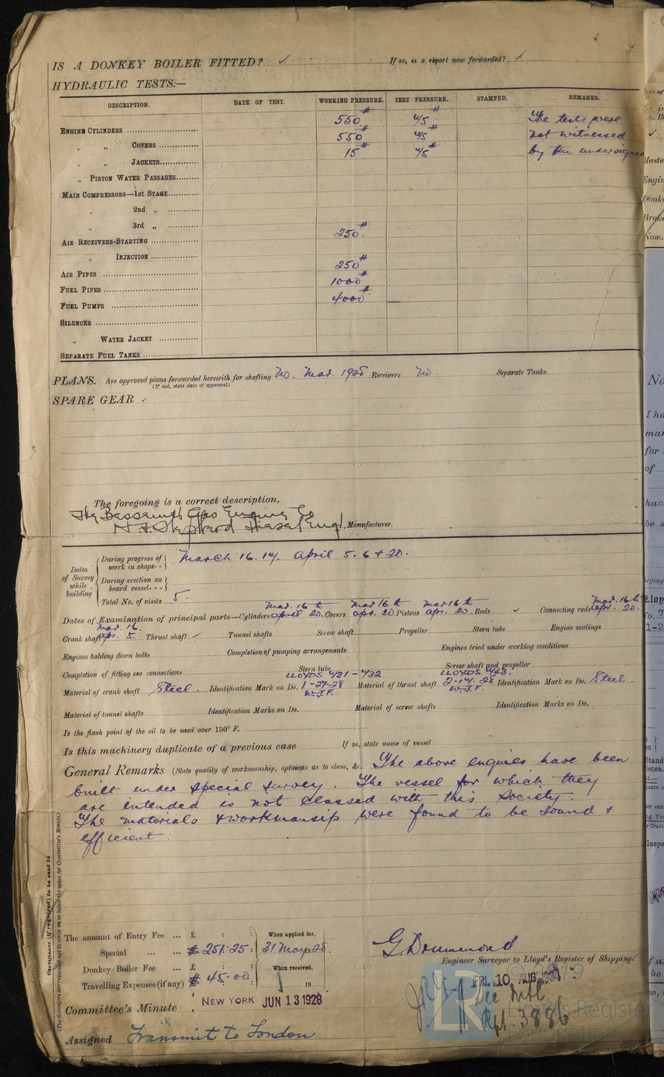 IS A DONKEY BOILER FITTED? ✓ If so, is a report now forwarded? ✓
HYDRAULIC TESTS:—
DESCRIPTION. DATE OF TEST. WORKING PRESSURE. TEST PRESSURE. STAMPED. REMARKS.
ENGINE CYLINDERS 550# 45# The tests were
„ „ COVERS 550# 45# not witnessed
„ „ JACKETS 15# 45# by the undersigned
„ PISTON WATER PASSAGES
MAIN COMPRESSORS—1ST STAGE
„ 2nd „
„ 3rd „
AIR RECEIVERS-STARTING 250#
„ INJECTION
AIR PIPES 250#
FUEL PIPES 1000#
FUEL PUMPS 4000# —
SILENCER
„ WATER JACKET
SEPARATE FUEL TANKS
PLANS. Are approved plans forwarded herewith for shafting No. Mar. 1925 Receivers No. Separate Tanks
(If not, state date of approval)
SPARE GEAR ✓
The foregoing is a correct description,
The Bessemer Gas Engine Co
Diesel Engr. Manufacturer.
Dates of Survey while building
During progress of work in shops - - March 16. 17. April 5. 6 + 20.
During erection on board vessel - - -
Total No. of visits 5.
Dates of Examination of principal parts—Cylinders Mar. 16th April 20. Covers Mar 16th Apr. 20 Pistons Mar 16th Apr. 20. Rods ✓ Connecting rods Mar. 16th Apr. 20.
Crank shaft Mar. 16. Apr. 5. Thrust shaft ✓ Tunnel shafts Screw shaft Propeller Stern tube Engine seatings
Engines holding down bolts Completion of pumping arrangements Engines tried under working conditions
Completion of fitting sea connections Stern tube Screw shaft and propeller
Material of crank shaft Steel. Identification Mark on Do. LLOYDS 431-432 1-27-28 W.J.F. Material of thrust shaft LLOYDS 2-14-28 W.J.F. Identification Mark on Do. Steel.
Material of tunnel shafts Identification Marks on Do. Material of screw shafts Identification Marks on Do.
Is the flash point of the oil to be used over 150° F.
Is this machinery duplicate of a previous case If so, state name of vessel
General Remarks (State quality of workmanship, opinions as to class, &c. The above engines have been
built under special survey. The vessel for which they
are intended is not classed with this Society.
The materials & workmansip were found to be sound &
efficient
The amount of Entry Fee ... £ : : When applied for,
Special ... ... $ 251.25: 31 May 28.
Donkey Boiler Fee ... £ : : When received,
Travelling Expenses (if any) $ 45.00 19
G Drummond
Engineer Surveyor to Lloyd's Register of Shipping.
Committee's Minute NEW YORK JUN 13 1928
FRI. 10 AUG
See
Rpt. 3886
Assigned Transmit to London
LR